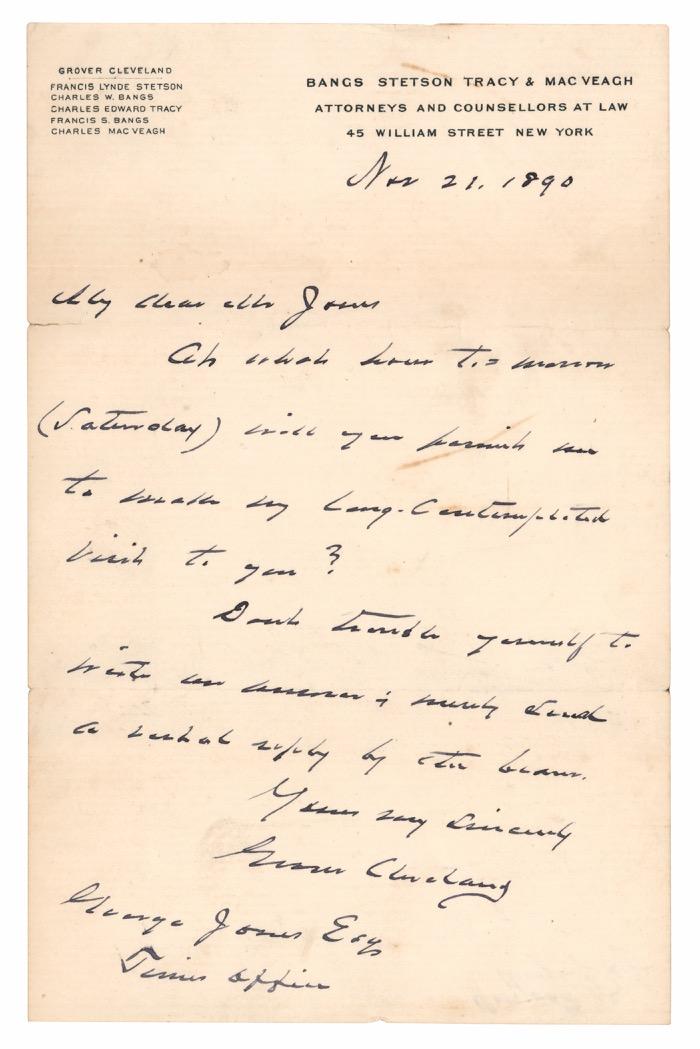 GROVER CLEVELAND
FRANCIS LYNDE STETSON
CHARLES W. BANGS
CHARLES EDWARD TRACY
FRANCIS S. BANGS
CHARLES MAC VEAGH
BANGS STETSON TRACY & MAC VEAGH
ATTORNEYS AND COUNSELLORS AT LAW
45 WILLIAM STREET NEW YORK
Nov 21. 1890
My dear Mr Jones
At what hour to-morrow
(Saturday) will you permit me
to make my long-contemplated
visit to you?
Don't trouble yourself to
write an answer; merely send
a verbal reply by the bearer.
Yours very sincerely
Grover Cleveland
George Jones Esq
Times Office